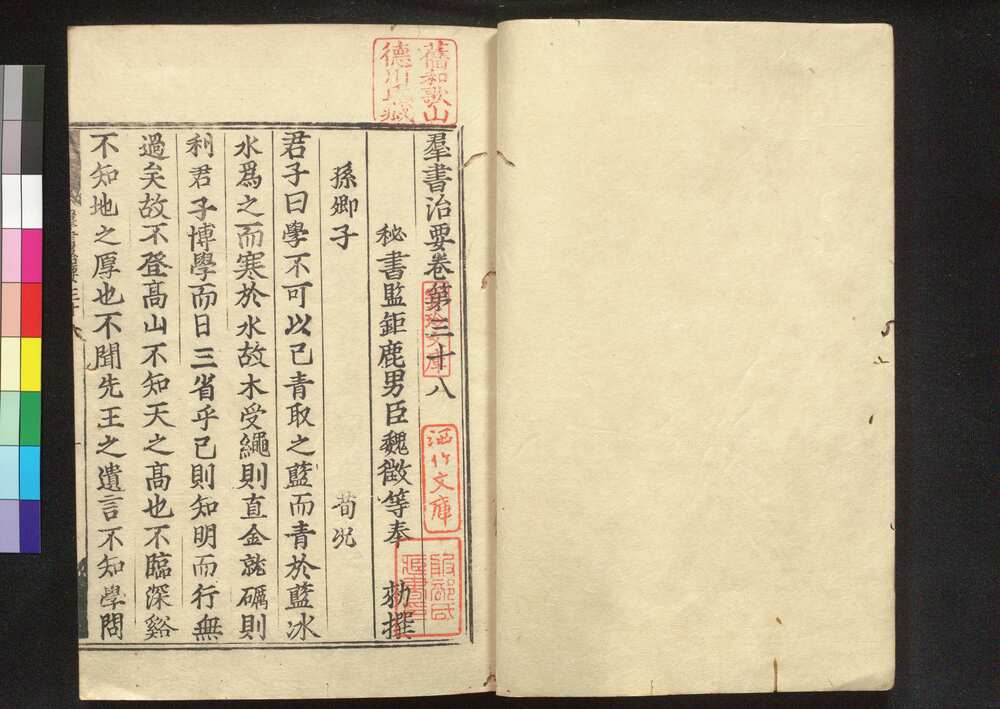 羣書治要卷第三十八
秘書監鉅鹿男臣魏徵等奉 勑撰
孫卿子 荀況
君子曰學不可以已青取之藍而青於藍冰
水爲之而寒於水故木受繩則直金就礪則
利君子博學而日三省乎己則知明而行無
過矣故不登髙山不知天之髙也不臨深谿
不知地之厚也不聞先王之遺言不知學問
舊和歌山
德川氏藏
洒竹文庫